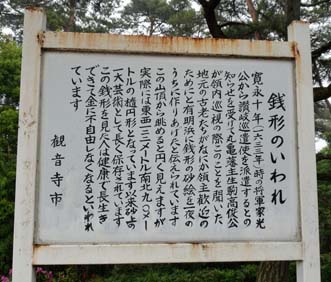 銭形のいわれ
寛永十年(一六三三年)時の将軍家光
公から讃岐巡遣使を派遣するとの
知らせを受けて丸亀藩主生駒高俊公
が領内巡視の際このことを聞いた
地元の古老たちがなにか領主歓迎の
ためにと有明浜に銭形の砂絵を一夜の
うちに作りあげたと伝えられています
この山頂から眺めると円く見えますが
実際には東西一二二メートル南北九〇メー
トルの楕円形となっています永く砂上の
一大芸術として長く保存されています
この銭形を見た人は健康で長生き
できて金に不自由しなくなるといわれ
ています
観音寺市